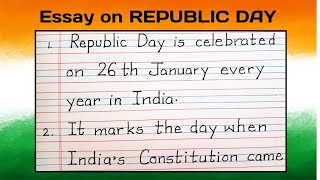 Essay on REPUBLIC DAY
1. Republic Day is celebrated
on 26th January every
year in India.
2. It marks the day when
India's Constitution came